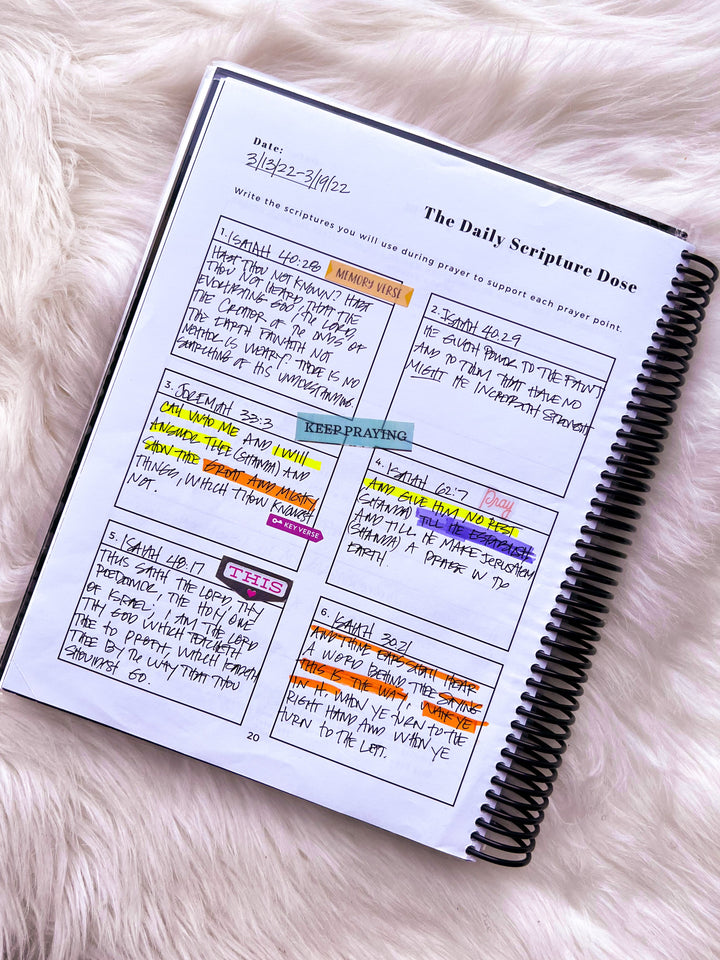 Date:
3/13/22-3/19/22
The Daily Scripture Dose
Write the scriptures you will use during prayer to support each prayer point.
1. ISAIAH 40:28
MEMORY VERSE
HAST THOU NOT KNOWN? HAST
THOU NOT HEARD THAT THE
EVERLASTING GOD, THE LORD,
THE CREATOR OF THE ENDS OF
THE EARTH FAINTETH NOT
NEITHER IS WEARY? THERE IS NO
SEARCHING OF HIS UNDERSTANDING.
2. ISAIAH 40:29
HE GIVETH POWER TO THE FAINT
AND TO THEM THAT HAVE NO
MIGHT HE INCREASETH STRENGTH
3. JEREMIAH 33:3
KEEP PRAYING
CALL UNTO ME AND I WILL
ANSWER THEE (SHANDA) AND
SHOW THEE GREAT AND MIGHTY
THINGS, WHICH THOU KNOWEST
NOT.
KEY VERSE
4. ISAIAH 62:7
Pray
AND GIVE HIM NO REST
(SHANDA) TILL HE ESTABLISH
AND TILL HE MAKE JERUSALEM
(SHANDA) A PRAISE IN THE
EARTH.
5. ISAIAH 48:17
THIS
THUS SAITH THE LORD, THY
REDEEMER, THE HOLY ONE
OF ISRAEL; I AM THE LORD
THY GOD WHICH TEACHETH
THEE TO PROFIT, WHICH LEADETH
THEE BY THE WAY THAT THOU
SHOULDST GO.
6. ISAIAH 30:21
AND THINE EARS SHALL HEAR
A WORD BEHIND THEE SAYING
THIS IS THE WAY, WALK YE
IN IT, WHEN YE TURN TO THE
RIGHT HAND AND WHEN YE
TURN TO THE LEFT.
20